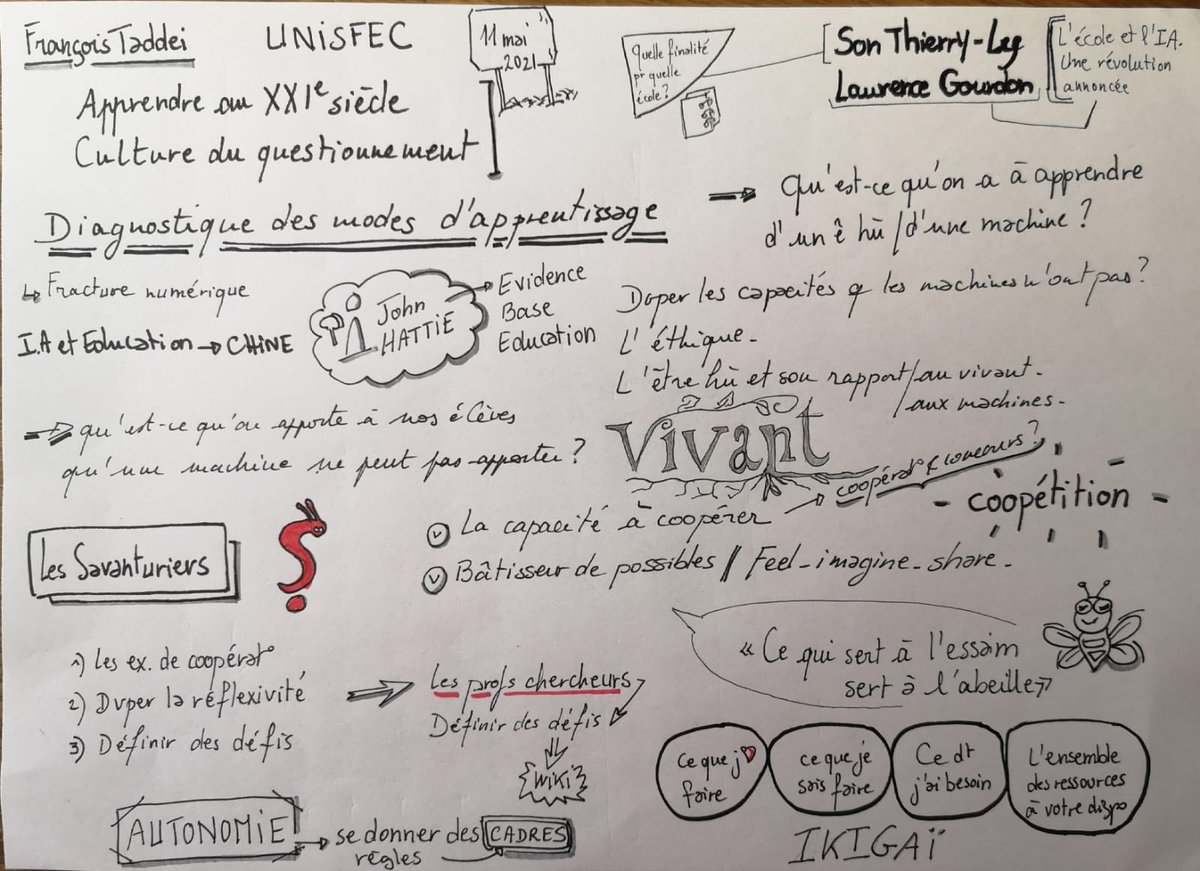 François Taddei
UNISFEC
11 mai
2021
Apprendre au XXIe siècle
Culture du questionnement
Quelle finalité
pr quelle
école?
Son Thierry-Ly
Laurence Gourdon
L'école et l'IA.
Une révolution
annoncée
Diagnostique des modes d'apprentissage
Qu'est-ce qu'on a à apprendre
d'un ê hù/d'une machine?
Fracture numérique
I.A et Education → CHINE
John
HATTIE
Evidence
Base
Education
Dvper les capacités q les machines n'ont pas?
L'éthique.
L'être hù et son rapport/au vivant.
/aux machines.
qu'est-ce qu'on apporte à nos élèves
qu'une machine ne peut pas apporter?
Vivant
La capacité à coopérer
coopérat° & concours?
coopétition
Bâtisseur de possibles // Feel-imagine-share.
Les Savanturiers
1) Les ex. de coopérat°
2) Dvper la réflexivité
3) Définir des défis
Les profs chercheurs
Définir des défis
Wiki
« Ce qui sert à l'essaim
sert à l'abeille »
Ce que j'❤
faire
ce que je
sais faire
Ce dt
j'ai besoin
L'ensemble
des ressources
à votre dispo
IKIGAÏ
AUTONOMIE → se donner des CADRES
règles